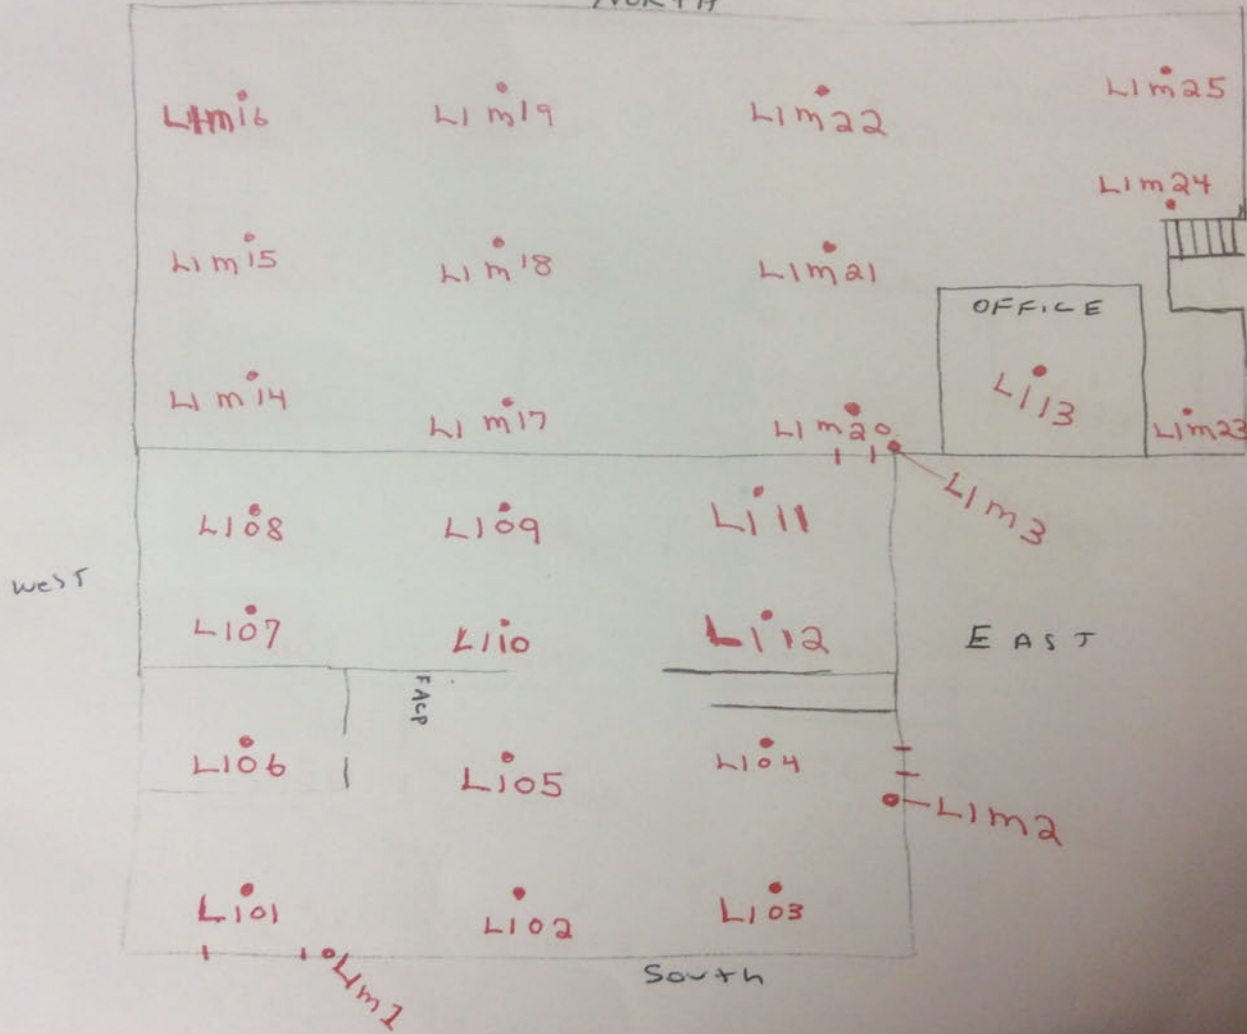 NORTH
L1m16 L1m19 L1m22 L1m25
L1m24
L1m15 L1m18 L1m21
OFFICE
L1m14 L1m17 L1m20 L113 L1m23
L1m3
L108 L109 L111
West
L107 L110 L112 EAST
FACP
L106 L105 L104
L1m2
L101 L102 L103
South
L1m1